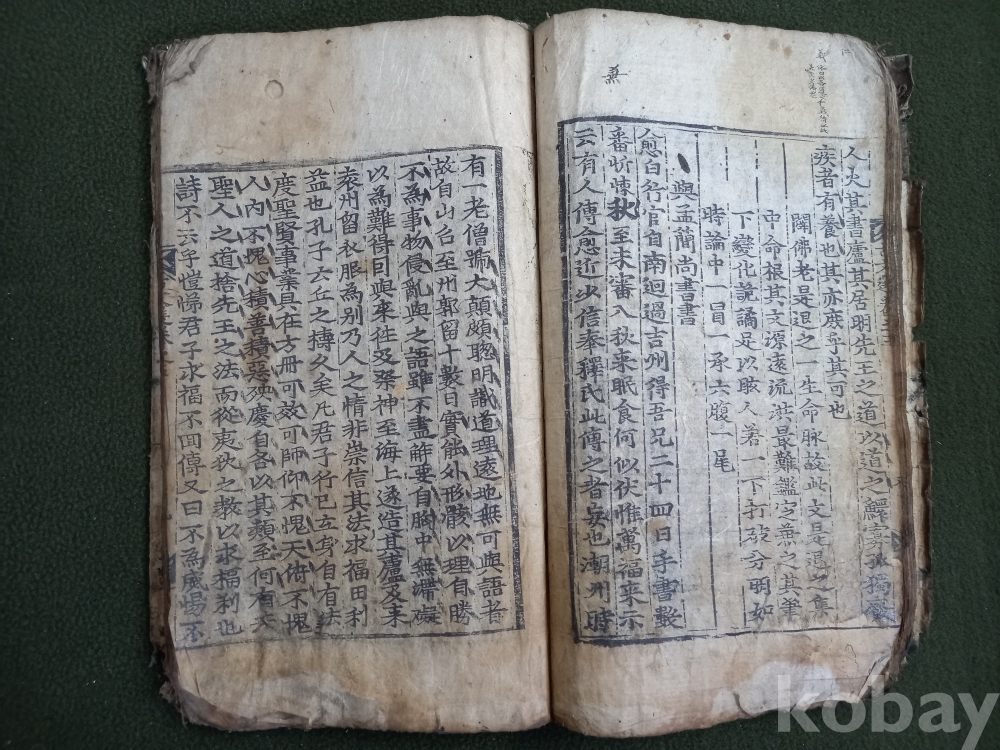 人火其書廬其居明先王之道以道之鰥寡孤獨廢
疾者有養也其亦庶乎其可也
闢佛老是退之一生命脉故此文是退之集
中命根其文源遠流洪最難鑑定兼之其筆
下變化詭譎足以眩人若一下打破分明如
時論中一冒一承六腹一尾
與孟簡尚書書
愈白行官自南迴過吉州得吾兄二十四日手書數
番忻悚秋至未審入秋来眠食何似伏惟萬福来示
云有人傳愈近少信奉釋氏此傳之者妄也潮州時
蕪
有一老僧號大顛頗聰明識道理遠地無可與語者
故自山召至州郭留十數日實能外形骸以理自勝
不為事物侵亂與之語雖不盡解要自胸中無滯礙
以為難得因與來徃及祭神至海上遂造其廬及来
袁州留衣服為別乃人之情非崇信其法求福田利
益也孔子云丘之禱久矣凡君子行已立身自有法
度聖賢事業具在方冊可效可師仰不愧天俯不愧
人內不愧心積善積惡殃慶自各以其類至何有去
聖人之道捨先王之法而從夷狄之教以求福利也
詩不云乎愷悌君子求福不回傳又曰不為威惕不
kobay